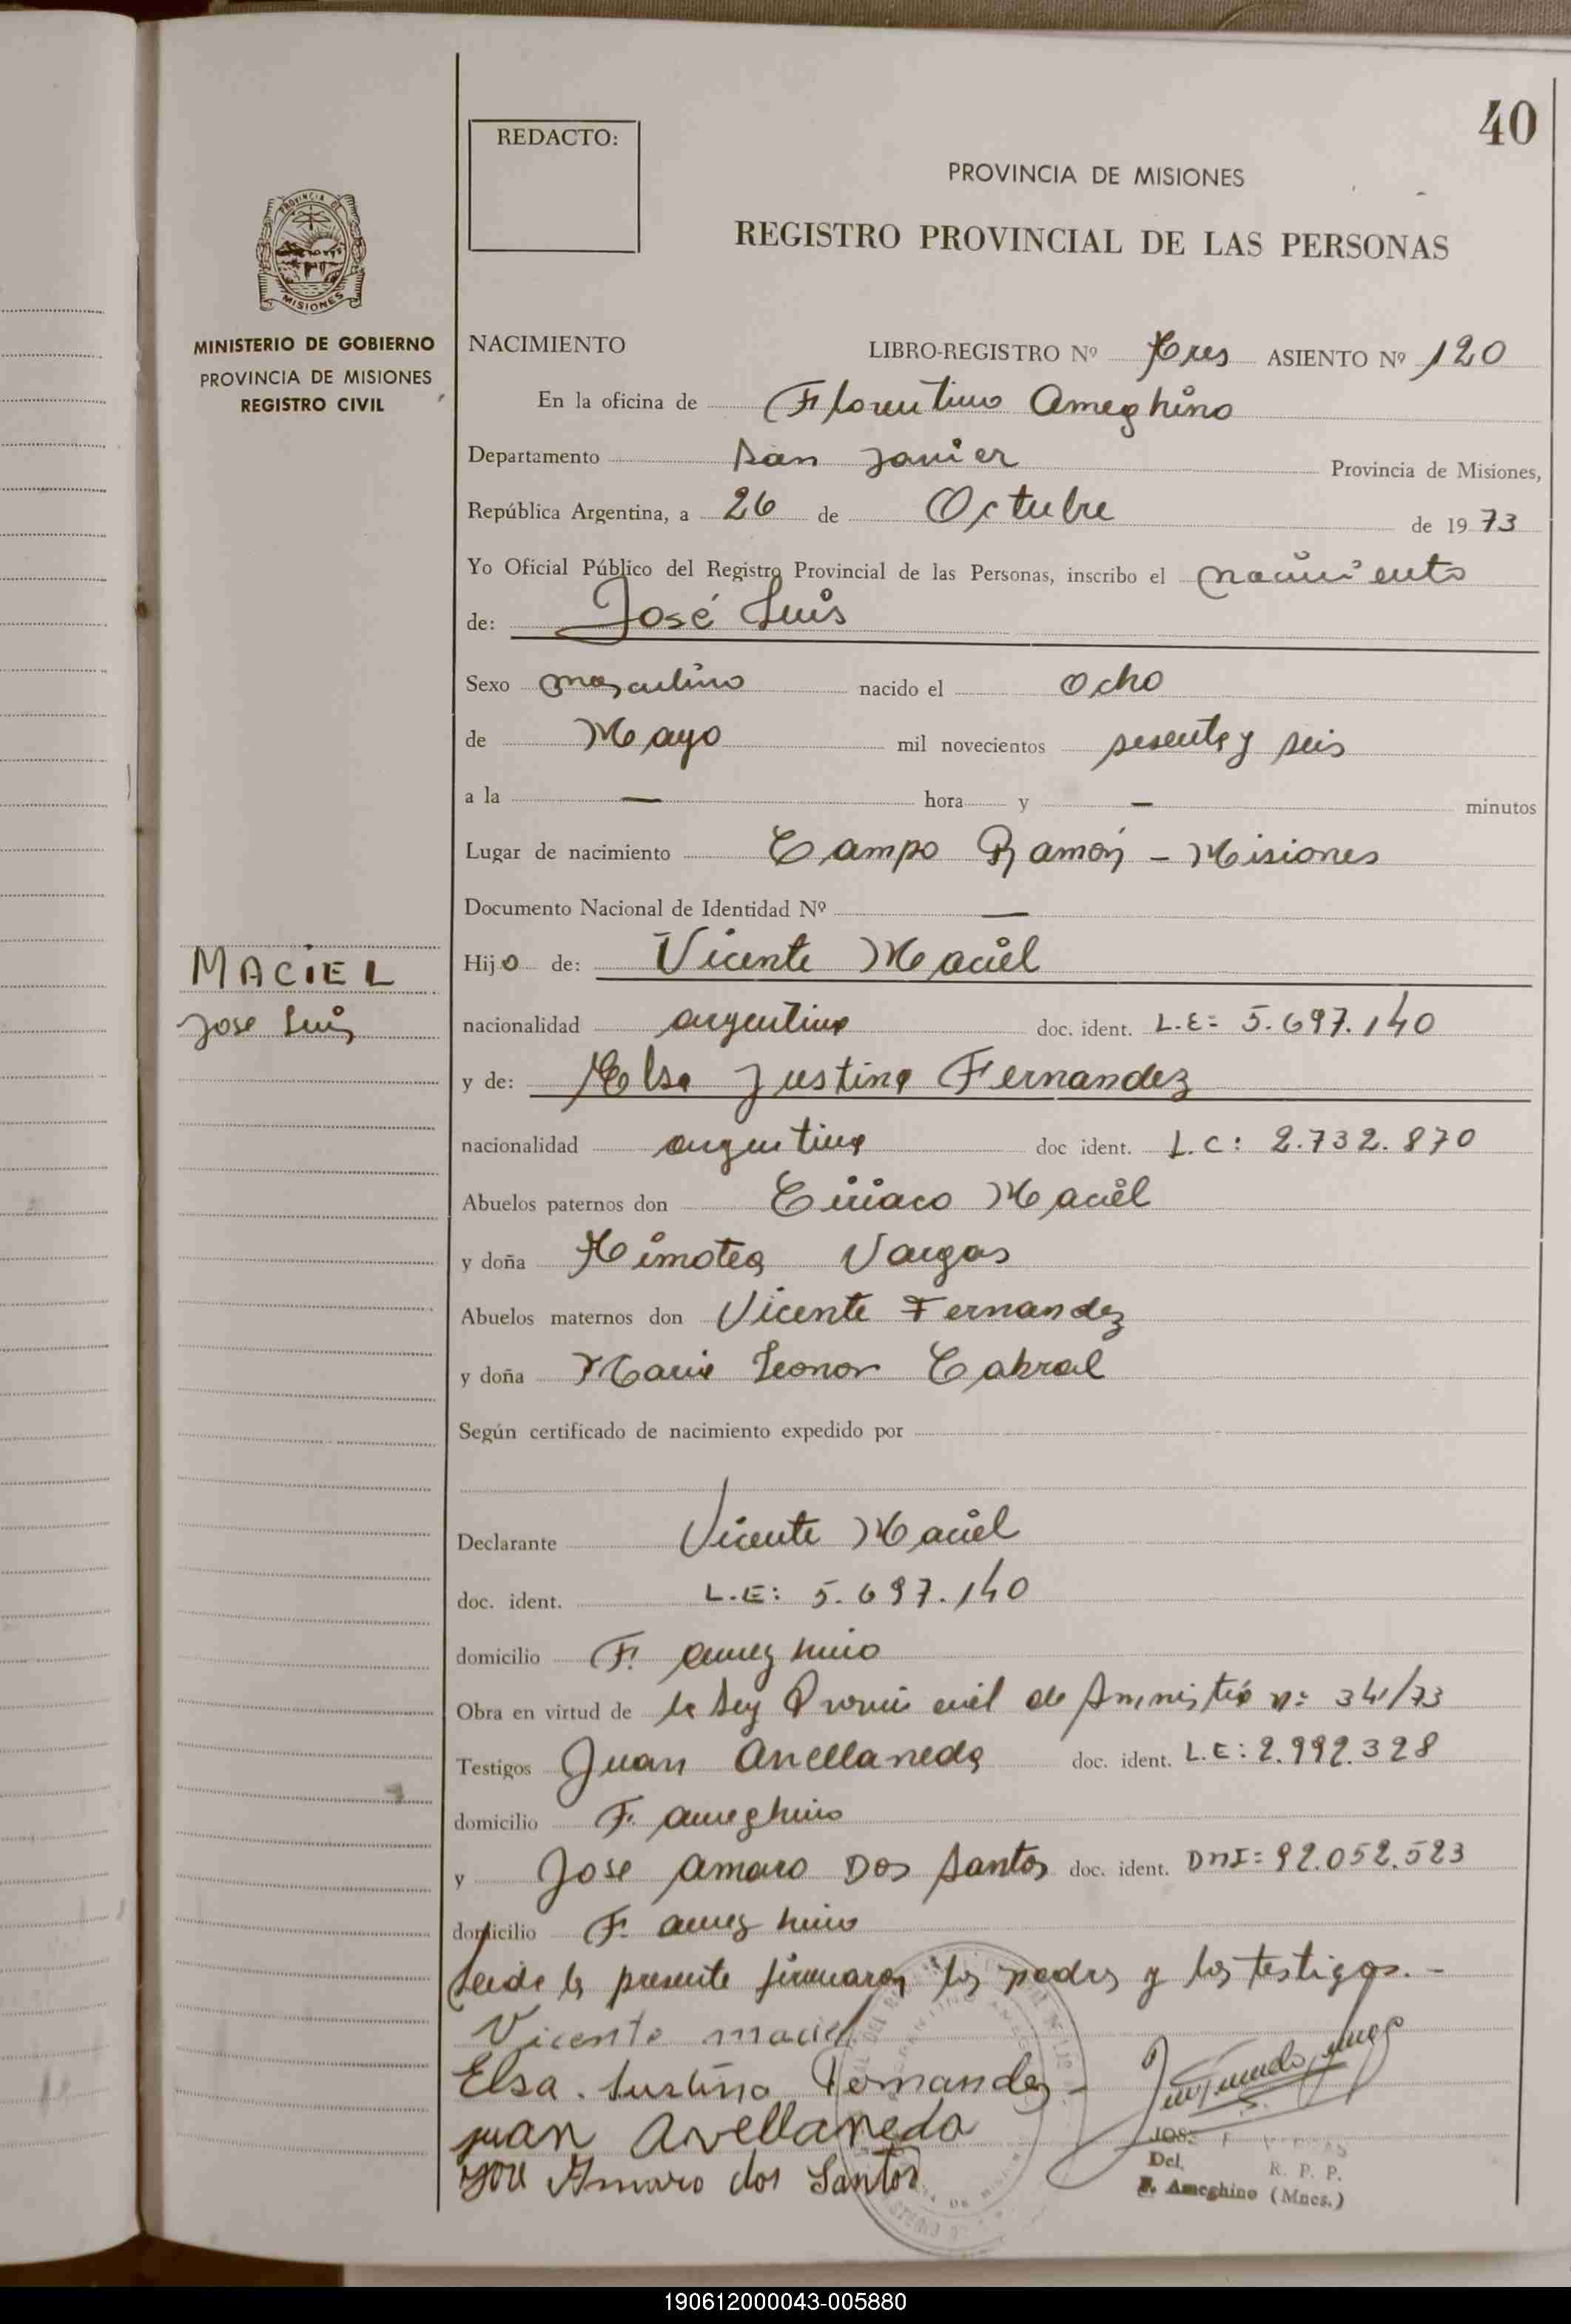 40
REDACTO:
PROVINCIA DE MISIONES
REGISTRO PROVINCIAL DE LAS PERSONAS
PROVINCIA DE
MISIONES
MINISTERIO DE GOBIERNO
PROVINCIA DE MISIONES
REGISTRO CIVIL
NACIMIENTO LIBRO-REGISTRO Nº Tres ASIENTO Nº 120
En la oficina de Florentino Ameghino
Departamento San Javier Provincia de Misiones,
República Argentina, a 26 de Octubre de 1973
Yo Oficial Público del Registro Provincial de las Personas, inscribo el nacimiento
de: José Luis
Sexo masculino nacido el ocho
de Mayo mil novecientos sesenta y seis
a la — hora y — minutos
Lugar de nacimiento Campo Ramón - Misiones
Documento Nacional de Identidad Nº —
MACIEL
Jose Luis
Hijo de: Vicente Maciel
nacionalidad argentino doc. ident. L.E: 5.697.140
y de: Elsa Justina Fernandez
nacionalidad argentina doc ident. L.C: 2.732.870
Abuelos paternos don Ciriaco Maciel
y doña Timotea Vargas
Abuelos maternos don Vicente Fernandez
y doña Maria Leonor Cabral
Según certificado de nacimiento expedido por
Declarante Vicente Maciel
doc. ident. L.E: 5.697.140
domicilio F. Ameghino
Obra en virtud de la Ley Provincial de Amnistia nº 341/73
Testigos Juan Avellaneda doc. ident. L.E: 2.992.328
domicilio F. Ameghino
y Jose Amaro Dos Santos doc. ident. DNI: 92.052.523
domicilio F. Ameghino
Leida la presente firmaron los padres y los testigos. -
Vicente maciel
Elsa. Justina Fernandez -
juan Avellaneda
José Amaro dos Santos
Del. R. P. P.
F. Ameghino (Mnes.)
190612000043-005880